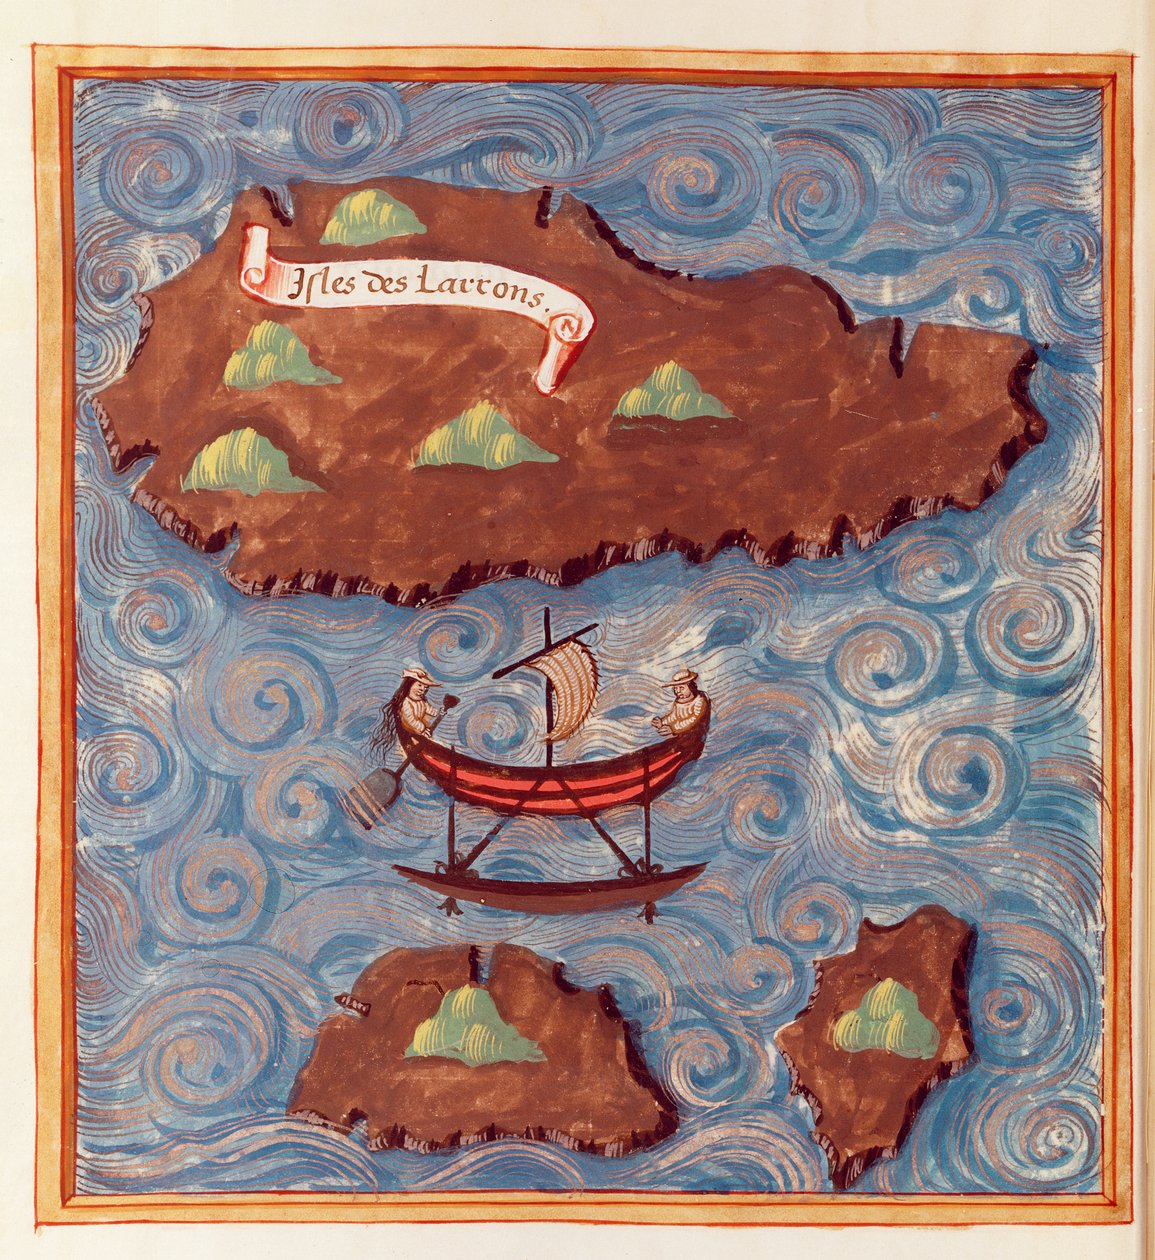 Isles des Larrons.